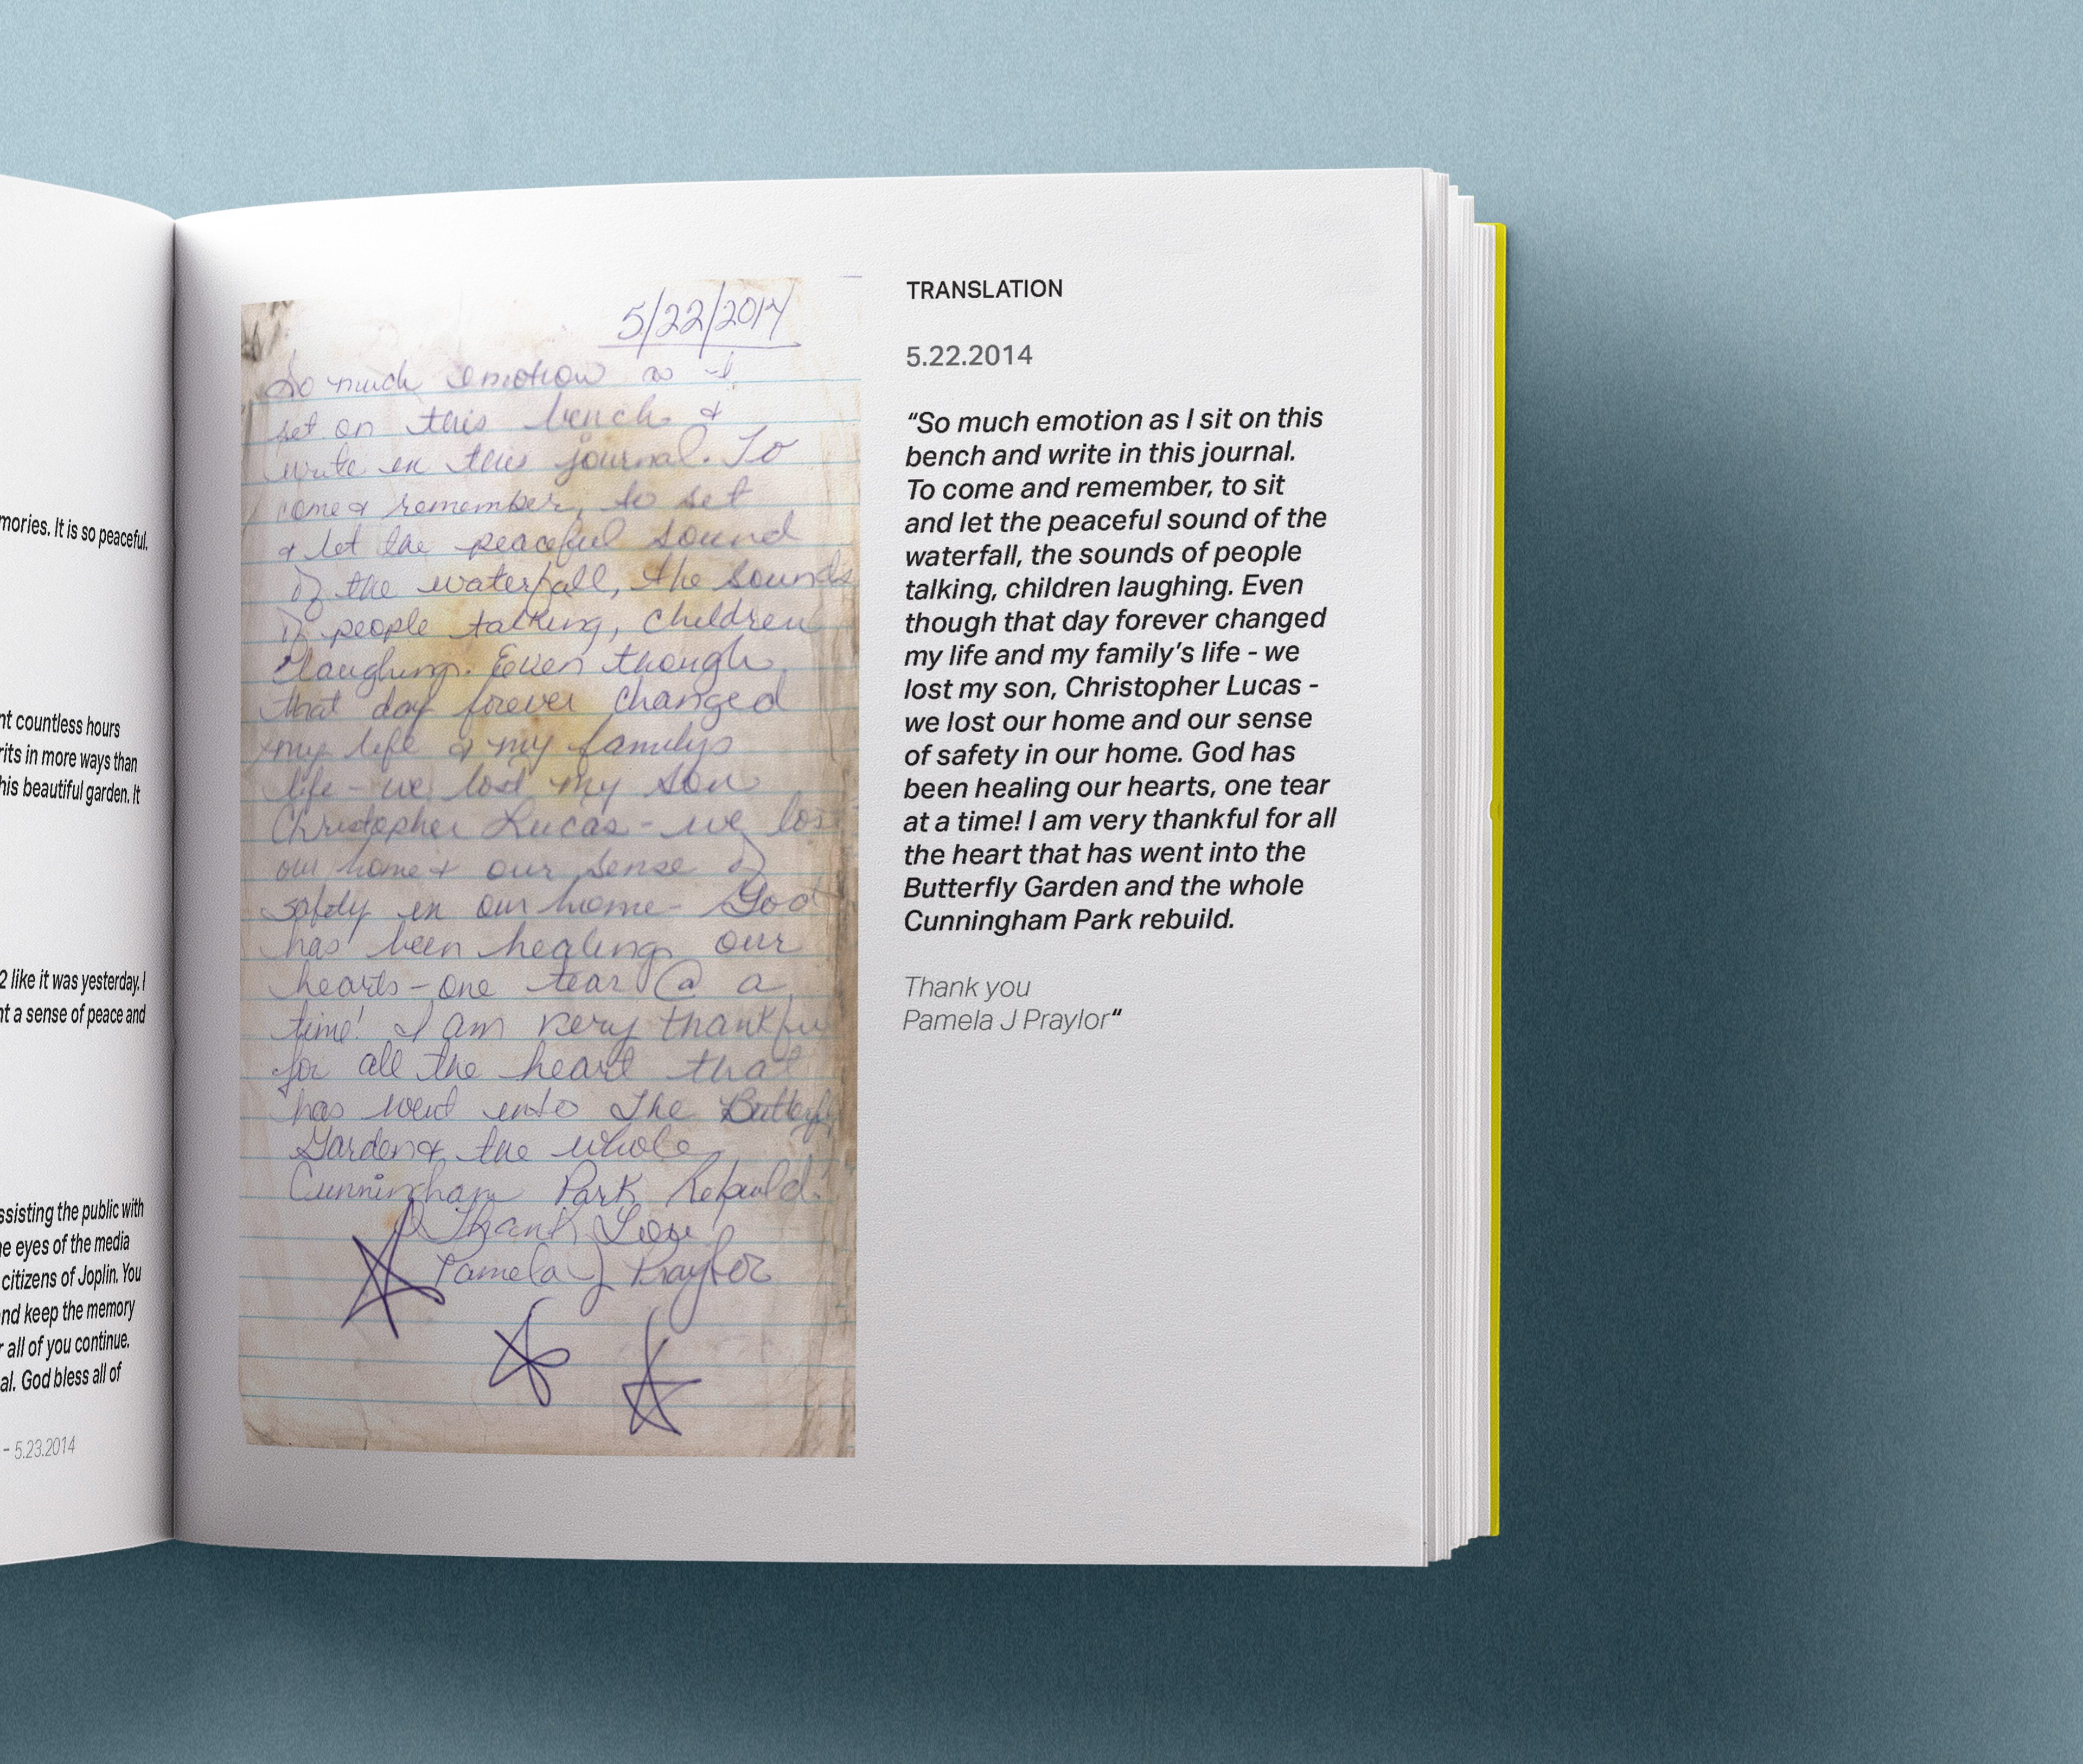 mories. It is so peaceful.
nt countless hours
rits in more ways than
his beautiful garden. It
2 like it was yesterday. I
nt a sense of peace and
ssisting the public with
he eyes of the media
citizens of Joplin. You
nd keep the memory
r all of you continue.
al. God bless all of
– 5.23.2014
5/22/2014
So much emotion as I
set on this bench &
write in this journal. To
come & remember, to set
& let the peaceful sound
of the waterfall, the sounds
of people talking, children
laughing. Even though
that day forever changed
my life & my familys
life - we lost my son
Christopher Lucas - we los
our home & our sense of
safety in our home - God
has been healing our
hearts - one tear @ a
time! I am very thankfu
for all the heart that
has went into The Butterfly
Garden & the whole
Cunningham Park Rebuild.
Thank You
Pamela J Praylor
TRANSLATION
5.22.2014
“So much emotion as I sit on this
bench and write in this journal.
To come and remember, to sit
and let the peaceful sound of the
waterfall, the sounds of people
talking, children laughing. Even
though that day forever changed
my life and my family’s life - we
lost my son, Christopher Lucas -
we lost our home and our sense
of safety in our home. God has
been healing our hearts, one tear
at a time! I am very thankful for all
the heart that has went into the
Butterfly Garden and the whole
Cunningham Park rebuild.
Thank you
Pamela J Praylor“